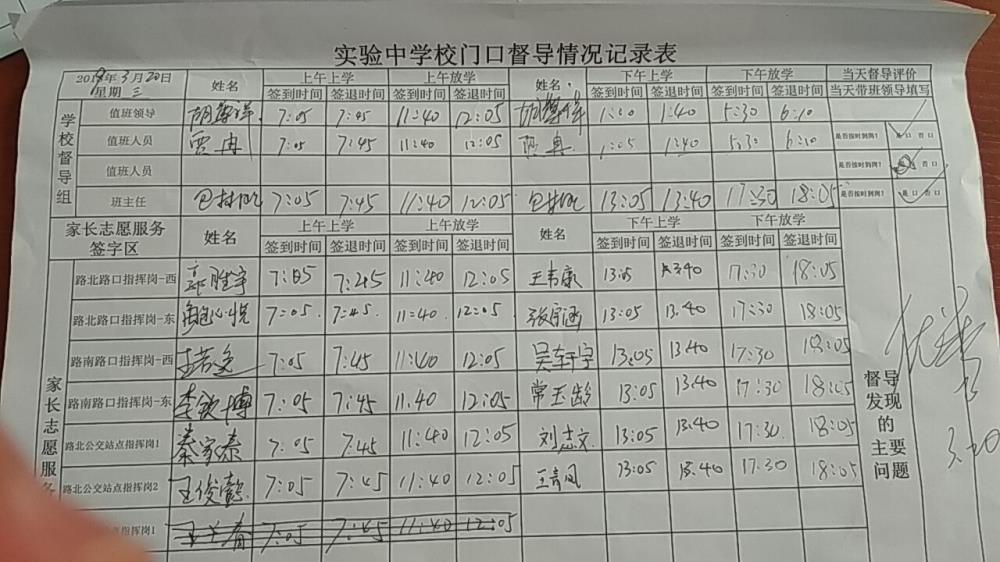 实验中学校门口督导情况记录表
2019年3月20日 星期三 姓名 上午上学 上午放学 姓名 下午上学 下午放学 当天督导评价
签到时间 签退时间 签到时间 签退时间 签到时间 签退时间 签到时间 签退时间 当天带班领导填写
学校督导组
值班领导 7:05 7:45 11:40 12:05 1:40 5:30 6:10
值班人员 贾冉 7:05 7:45 11:40 12:05 1:05 1:40 5:30 6:10 是否按时到岗? 是口 否口
值班人员 是否按时到岗? 否口
班主任 7:05 7:45 11:40 12:05 13:05 13:40 17:30 18:05 是否按时到岗? 是口 否口
家长志愿服务签字区 姓名 上午上学 上午放学 姓名 下午上学 下午放学
签到时间 签退时间 签到时间 签退时间 签到时间 签退时间 签到时间 签退时间
家长志愿服务
路北路口指挥岗-西 7:05 7:45 11:40 12:05 王韦康 13:05 13:40 17:30 18:05
路北路口指挥岗-东 7:05 7:45 11:40 12:05 13:05 13:40 17:30 18:05
路南路口指挥岗-西 7:05 7:45 11:40 12:05 13:05 13:40 17:30 18:05
路南路口指挥岗-东 李欽博 7:05 7:45 11:40 12:05 常玉龄 13:05 13:40 17:30 18:05
路北公交站点指挥岗1 秦家泰 7:05 7:45 11:40 12:05 刘志文 13:05 13:40 17:30 18:05
路北公交站点指挥岗2 王俊懿 7:05 7:45 11:40 12:05 王青凤 13:05 13:40 17:30 18:05
指挥岗1 7:05 7:45 11:40 12:05
督导发现的主要问题
3.20